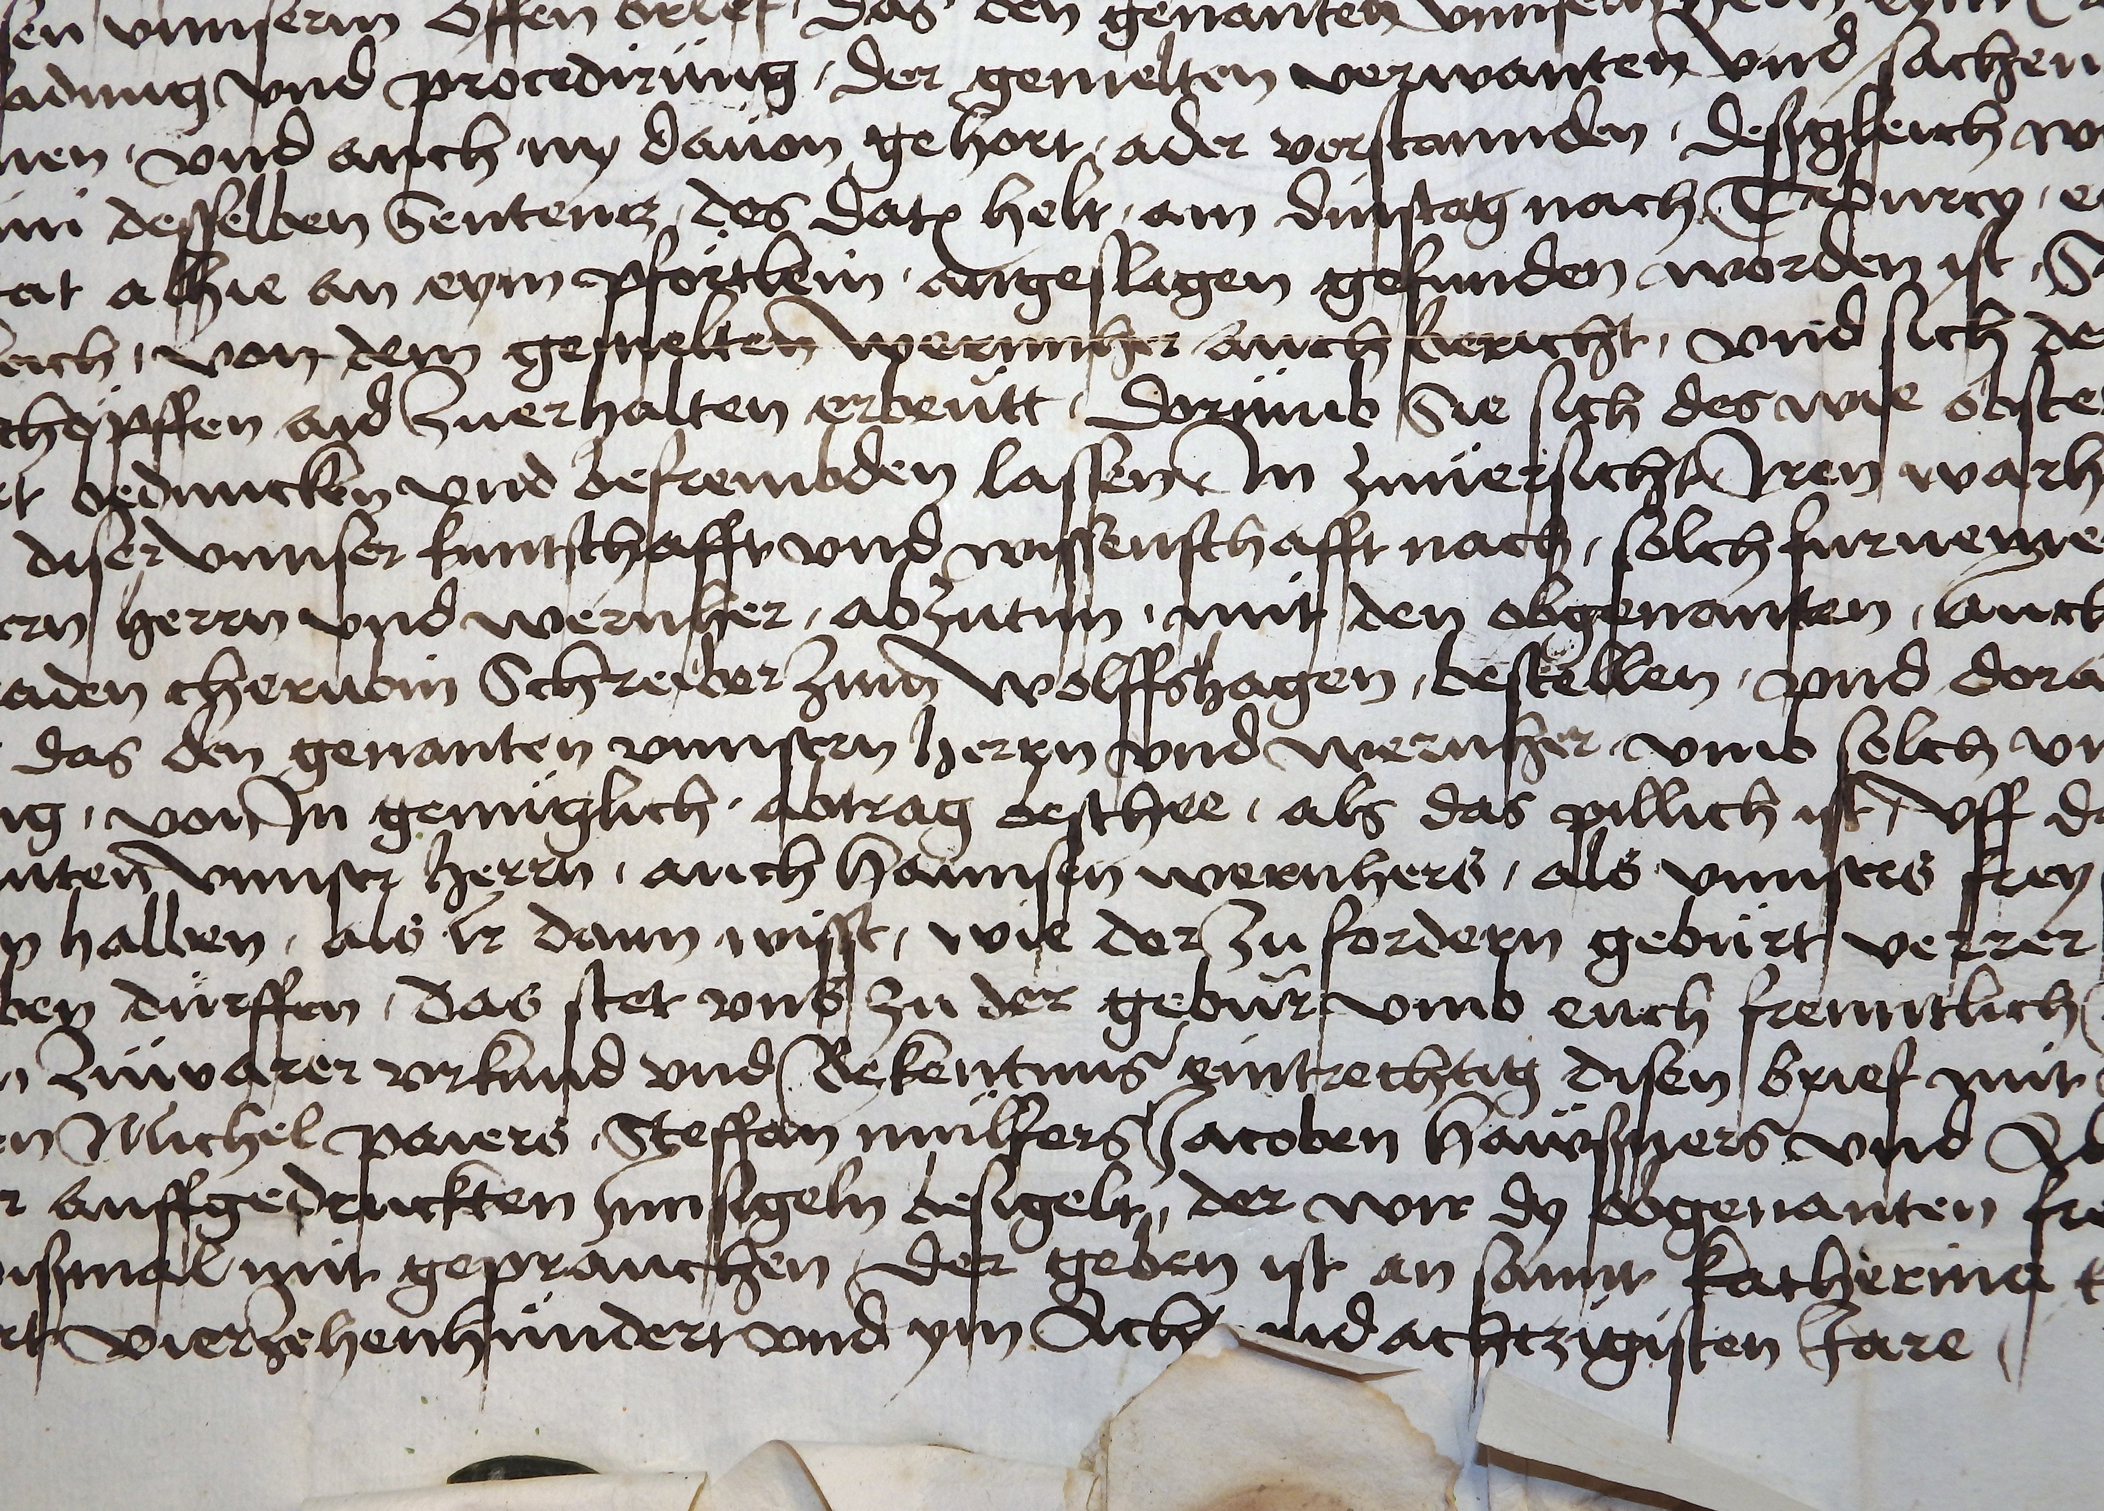 sen vnnserm offen brief, das den genanten vnnsern hern eym
adung vnd procedirüng, der gemelten verwanten vnd sachen
nen, vnd auch ny dauon gehort, ader verstannden, desszgleich
desselben Sentencz, des dat helt, am dinstag nach Tiburcy,
tat alhie an eym pförtlein, angeslagen gefunden worden ist,
leich, von dem gemelten wernnher auch bericht, vnd sich de
chöpffen aid Zuerhalten erbeutt, Dorümb Sie sich des wie obste
rt beduncken vnd befrembden lassen, In züuersicht Iren warh
diser vnnser kuntschafft vnd wissenschafft nach, solch furneme
ern herrn vnd wernher, abZutun, mit den obgenanten, auch
aden Schreiber Zum Wolffshagen, bestellen, vnd dora
das den genanten vnnsern herrn vnd wernher, vmb solch vn
ig, von In genüglich, abtrag beschee, als das pillich ist, vff d
nten vnnser herrn, auch hannsen wernhers, als vnnsers frey
n halben, als Ir dann wisst, wie der Zu fordern gebürt, verrer
ben dürffen, das stet vns Zu der gebür vmb euch freuntlich
n Züwarer vrkund vnd Bekentnus eintrechtig disen brief mit
en Michel paiers, Steffan müllers Jacoben häwszners vnd
r auffgedruckten Innsigeln besigelt, der wir dy obgenanten fre
iszmal mit geprauchen, Der geben ist an sannt Katherina
rt vierZehenhündert vnd ym Acht nd achtzigisten Jare